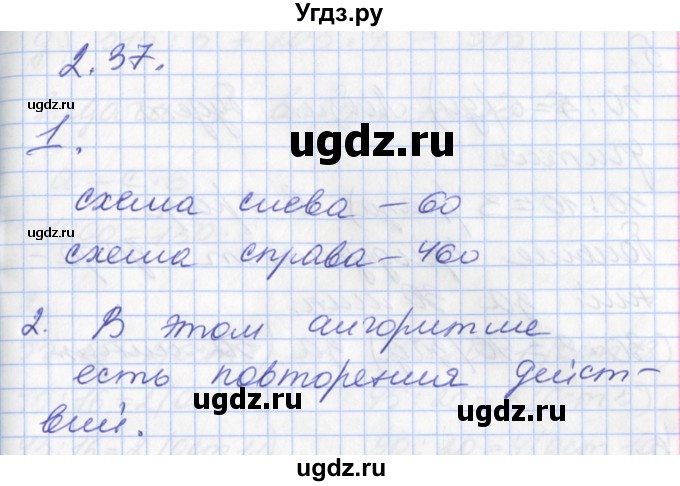 Угдз.ру
2.37.
ugdz.ru
1.
ugdz.ru
схема слева – 60
ugdz.ru
схема справа – 460
2. В этом алгоритме
есть повторения дейст-
ugdz.ru
ugdz.ru
вий.
ugdz.ru